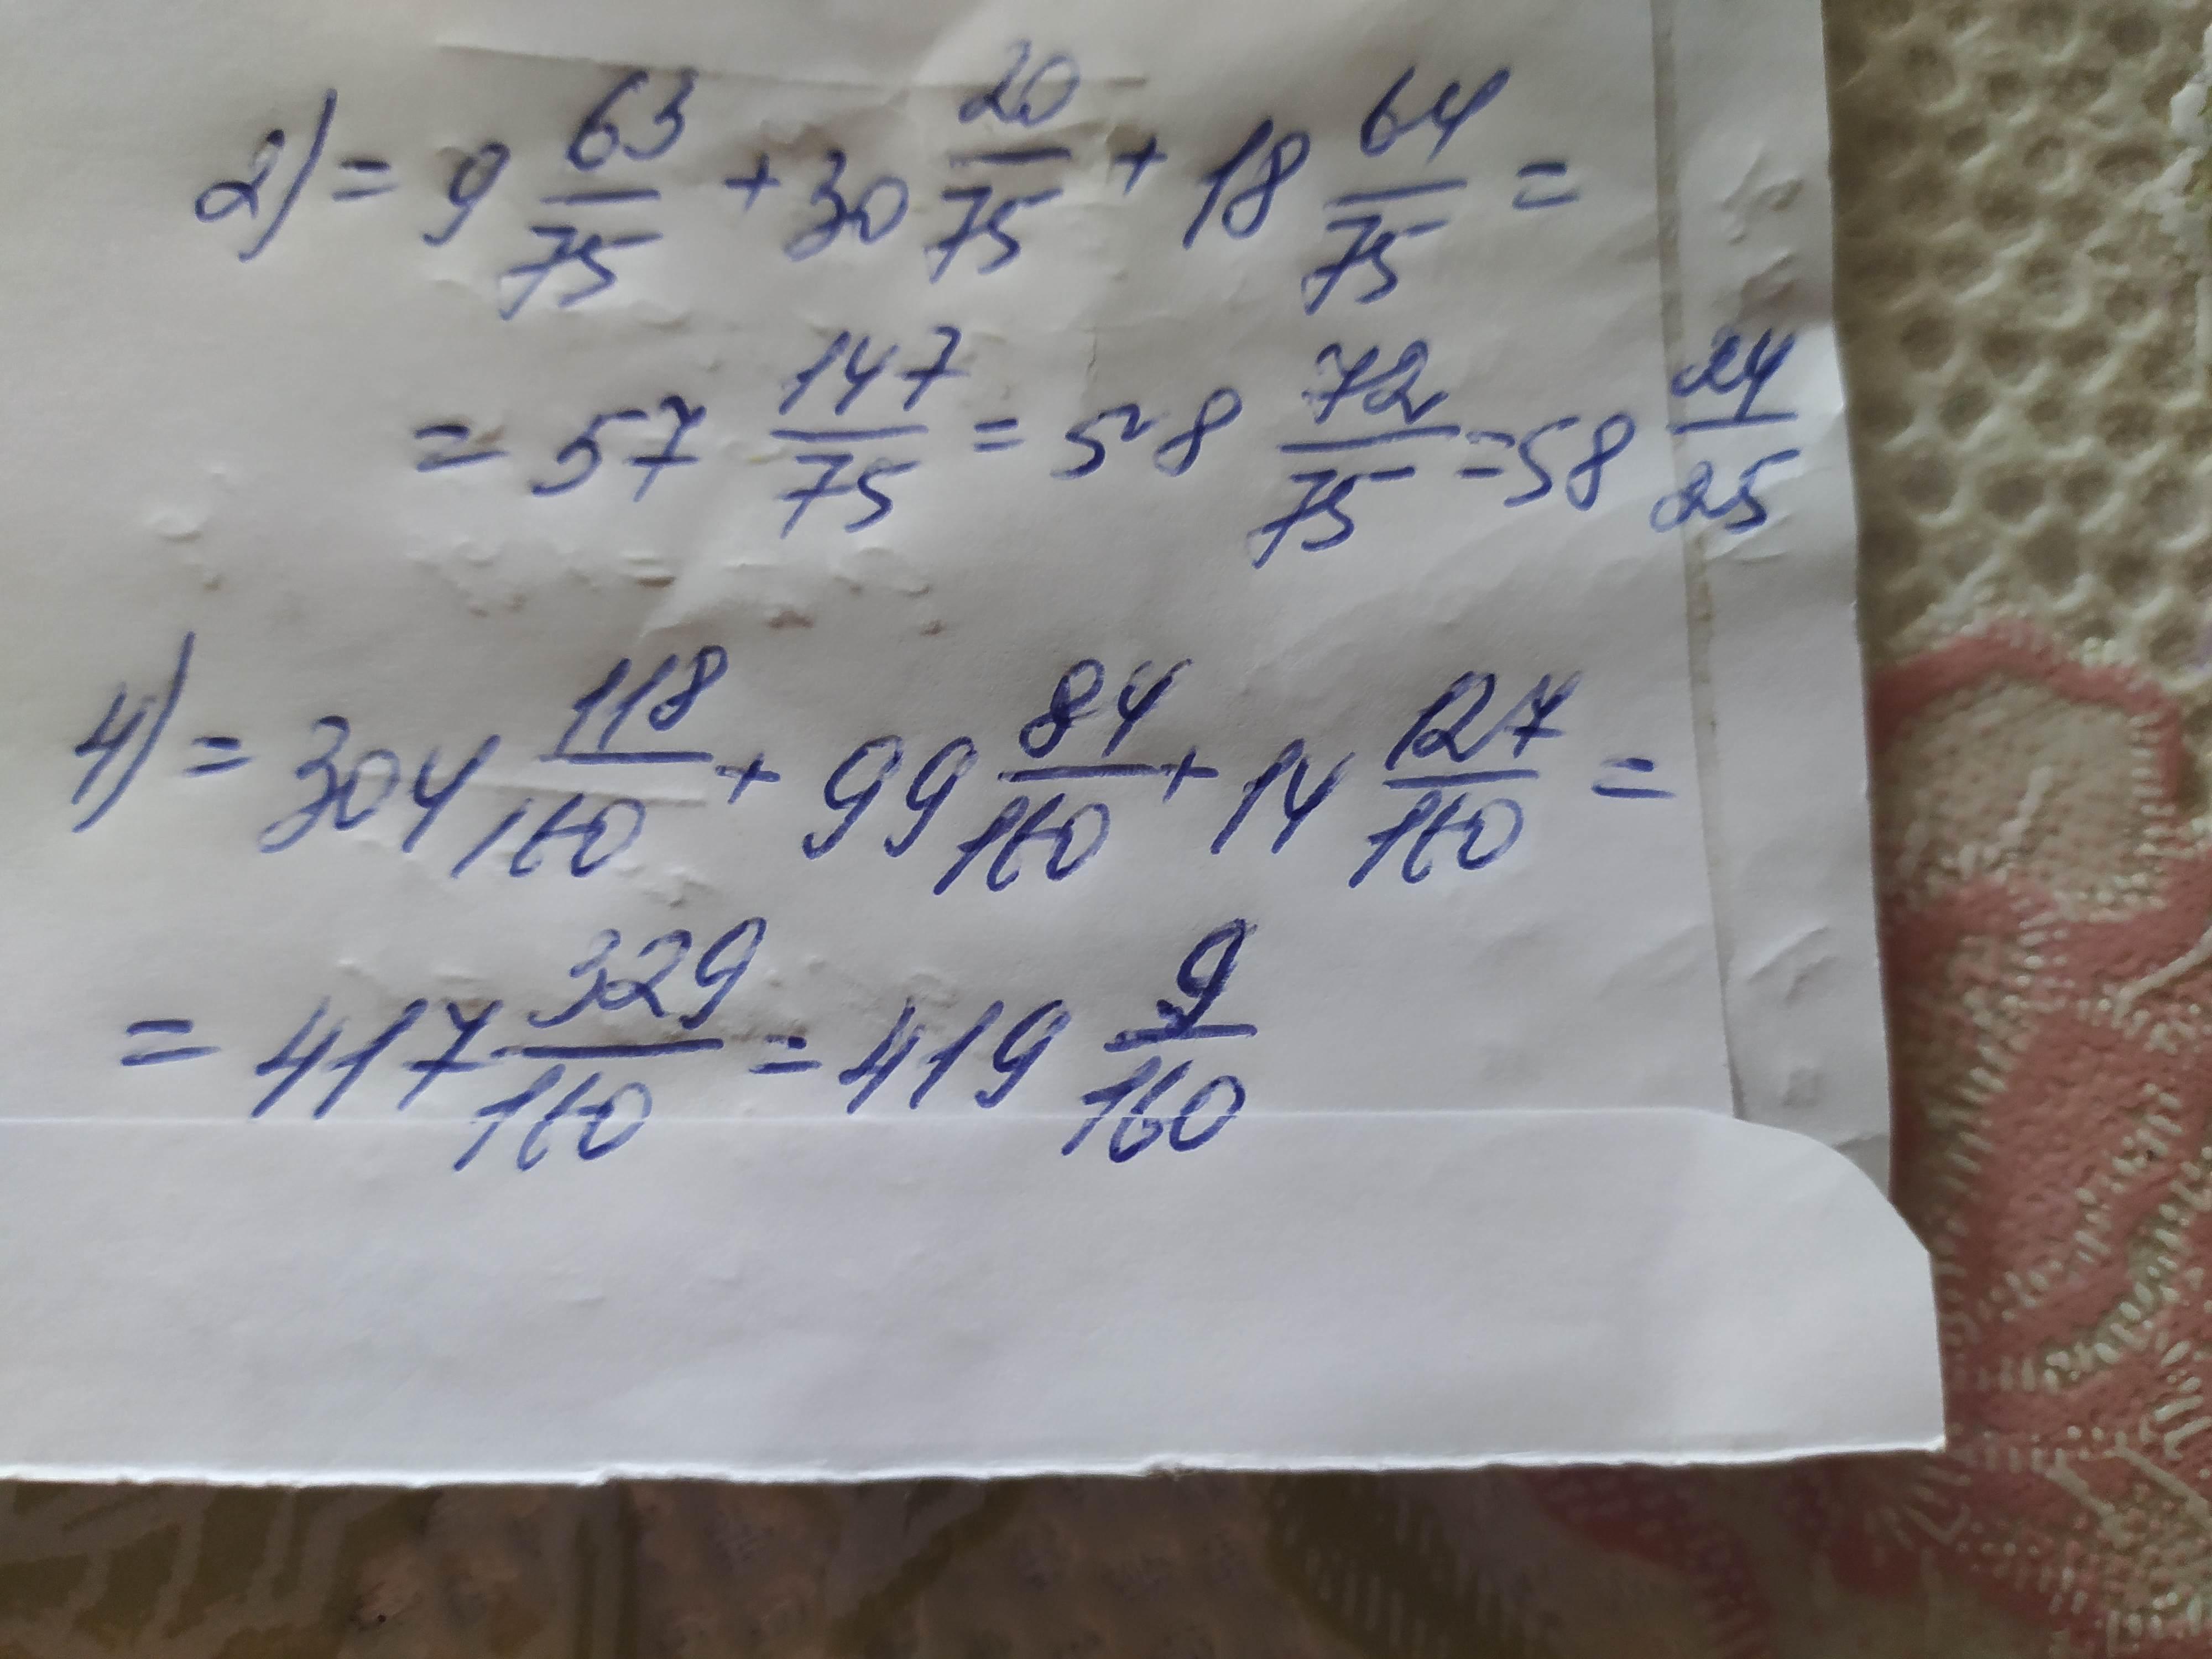 2) = 9 63/75 + 30 20/75 + 18 64/75 =
= 57 147/75 = 58 72/75 = 58 24/25
4) = 304 118/160 + 99 84/160 + 14 127/160 =
= 417 329/160 = 419 9/160